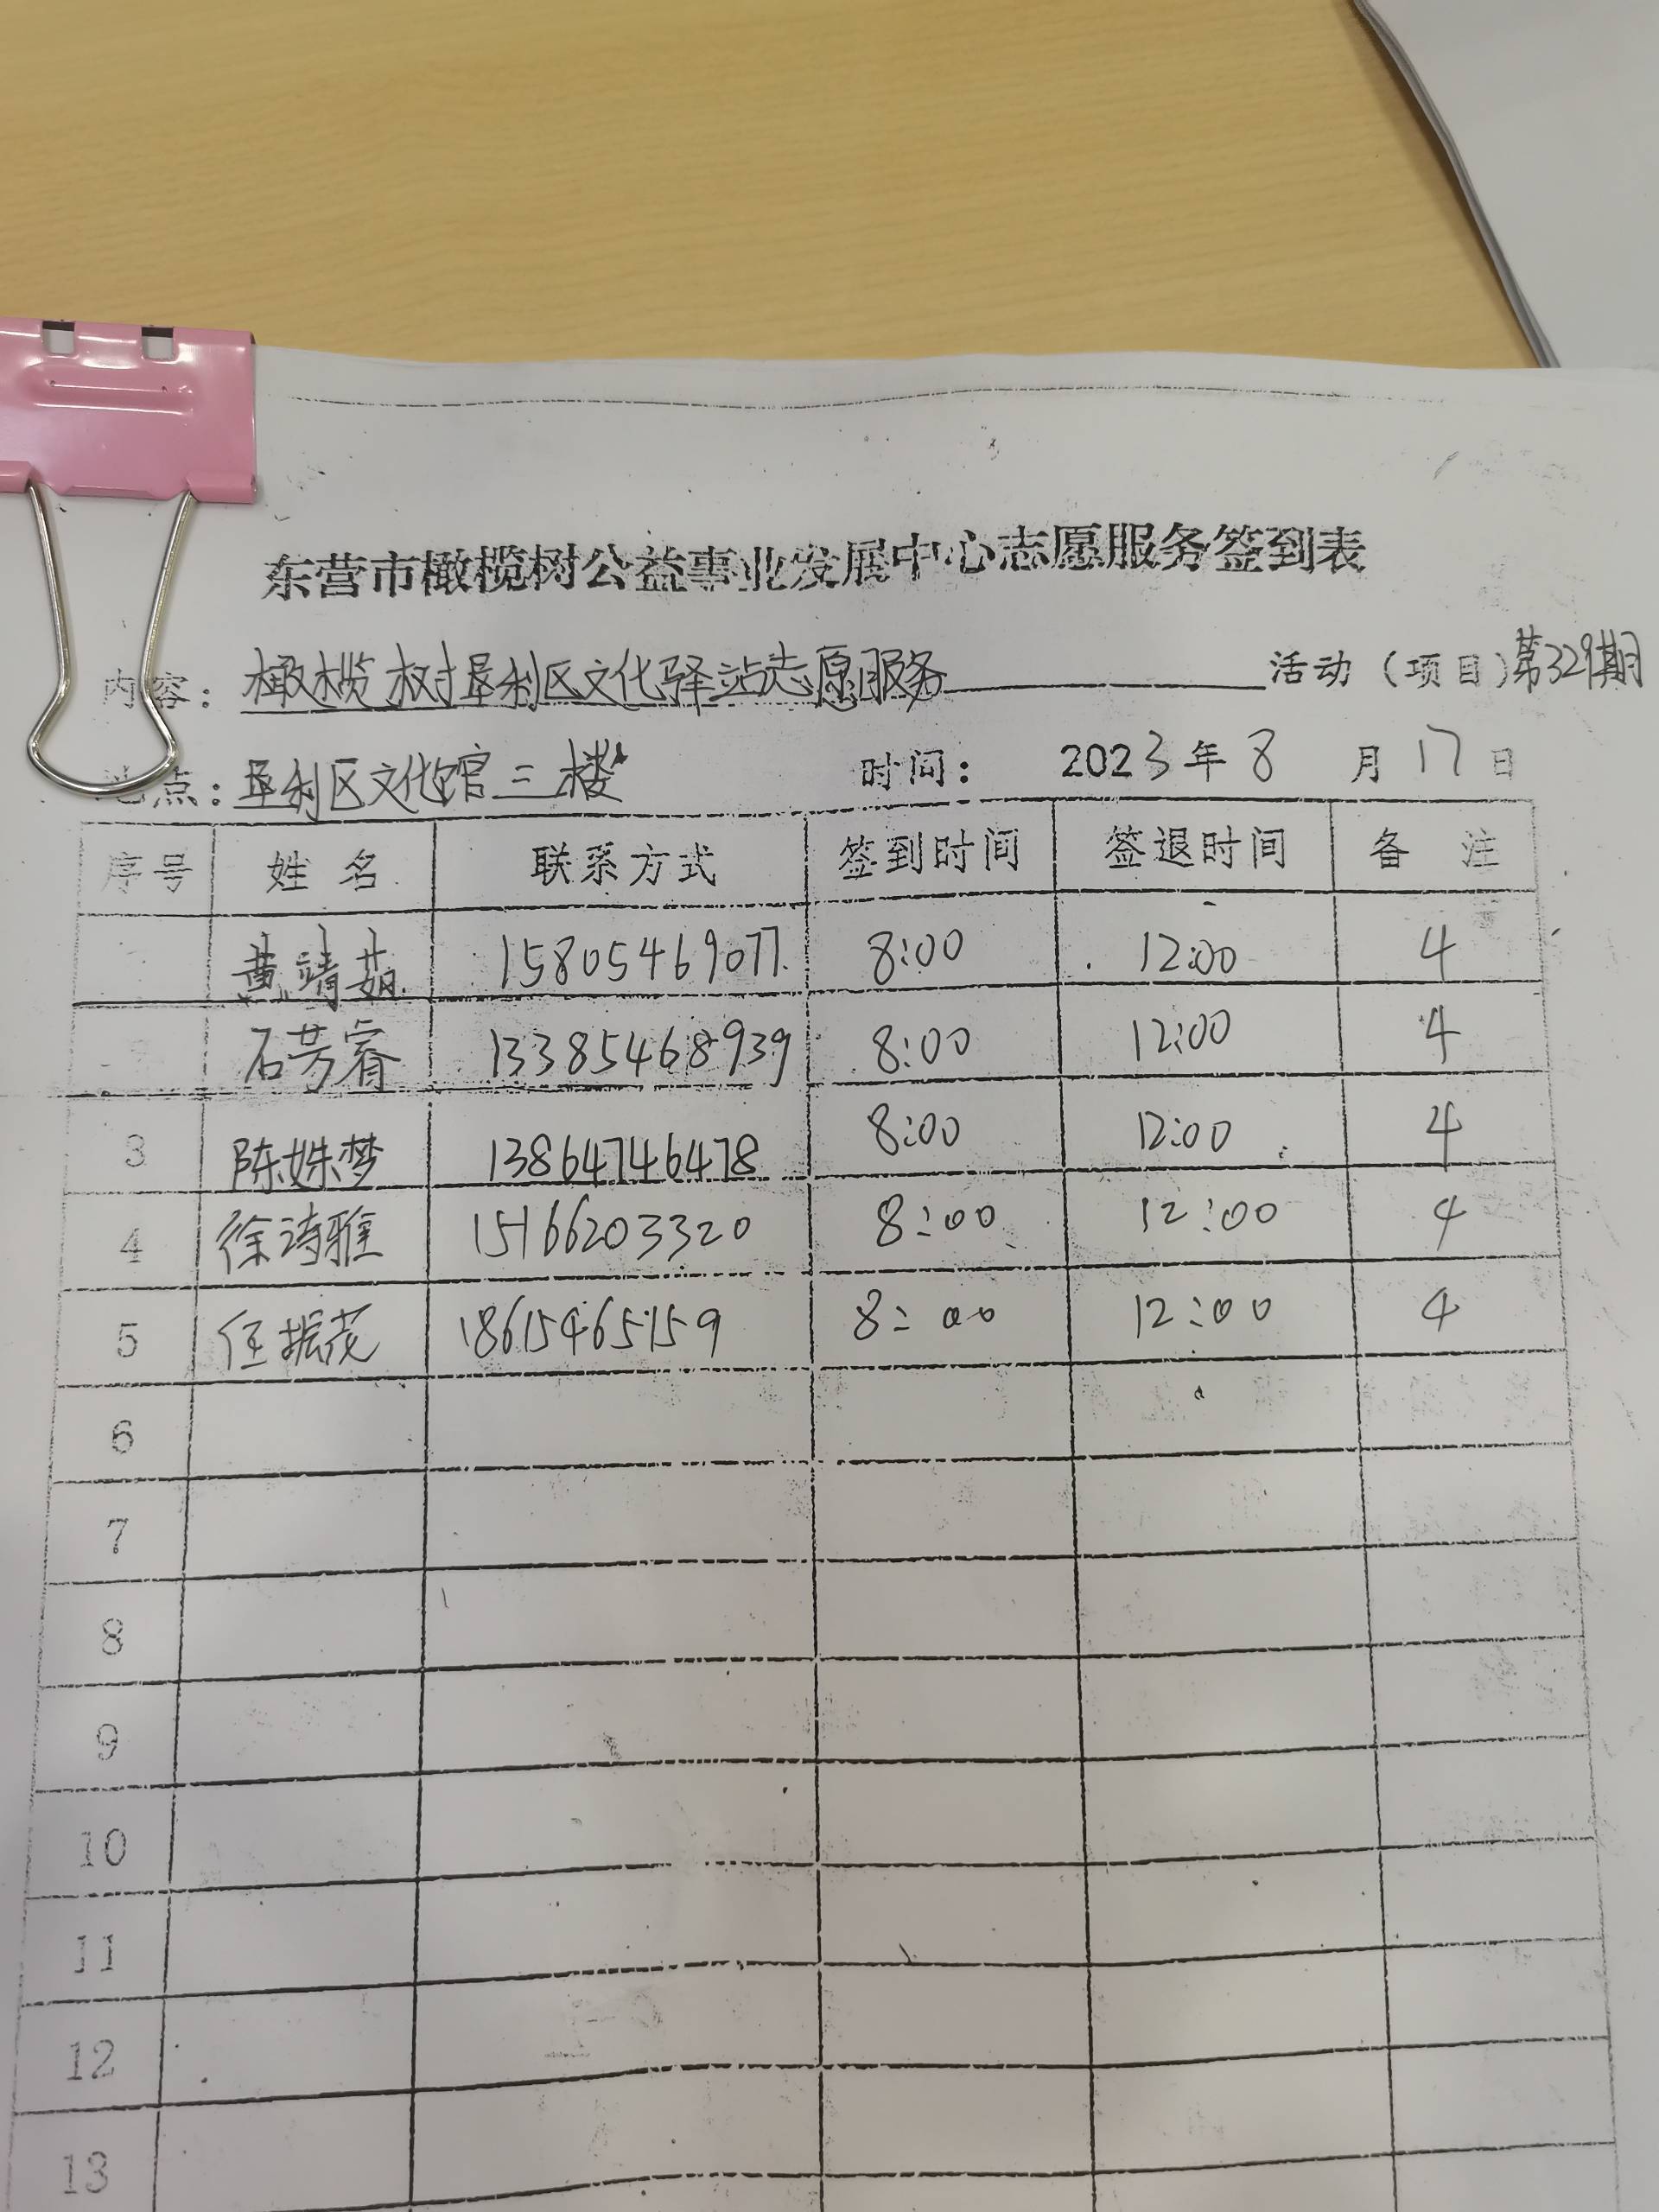 东营市橄榄树公益事业发展中心志愿服务签到表
内容：橄榄树垦利区文化驿站志愿服务 活动（项目）第329期
地点：垦利区文化馆三楼 时间： 2023年8月17日
序号 姓名 联系方式 签到时间 签退时间 备注
黄靖茹 15805469077 8:00 12:00 4
石芳睿 13385468939 8:00 12:00 4
3 陈姝梦 13864746478 8:00 12:00 4
4 徐诗雅 15166203320 8:00 12:00 4
5 任振茂 18615465159 8:00 12:00 4
6
7
8
9
10
11
12
13